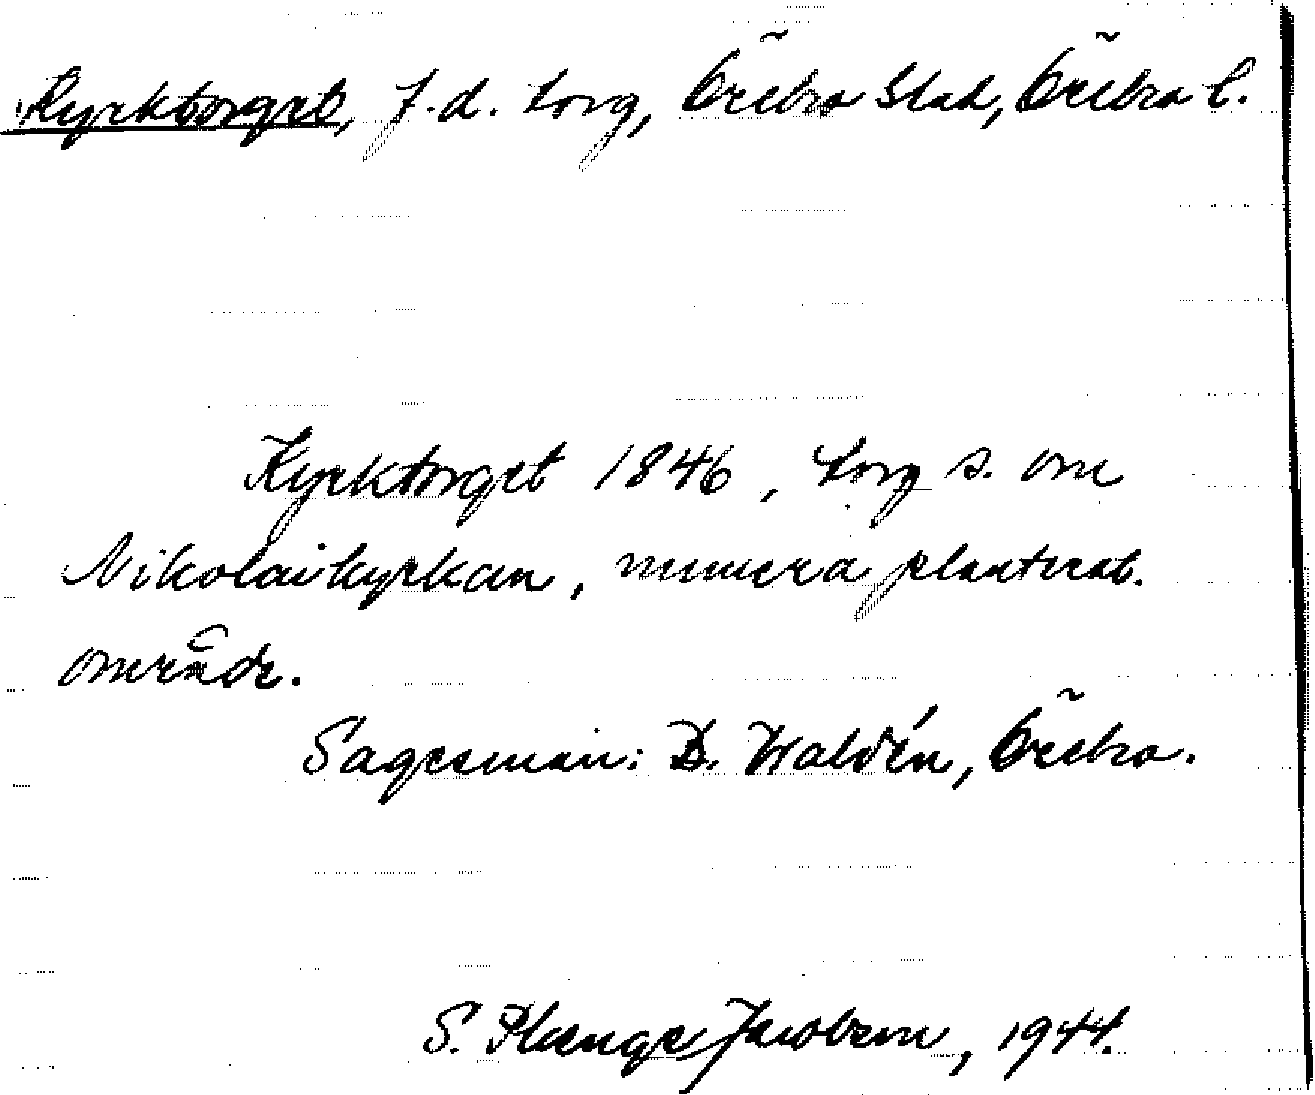 Kyrktorget, f.d. torg, Örebro Stad, Örebro l.
Kyrktorget 1846, torg s. om
Nikolaikyrkan, numera planterat
område.
Sagesman: B. Waldén, Örebro.
S. Plænge Jacobson, 1944.